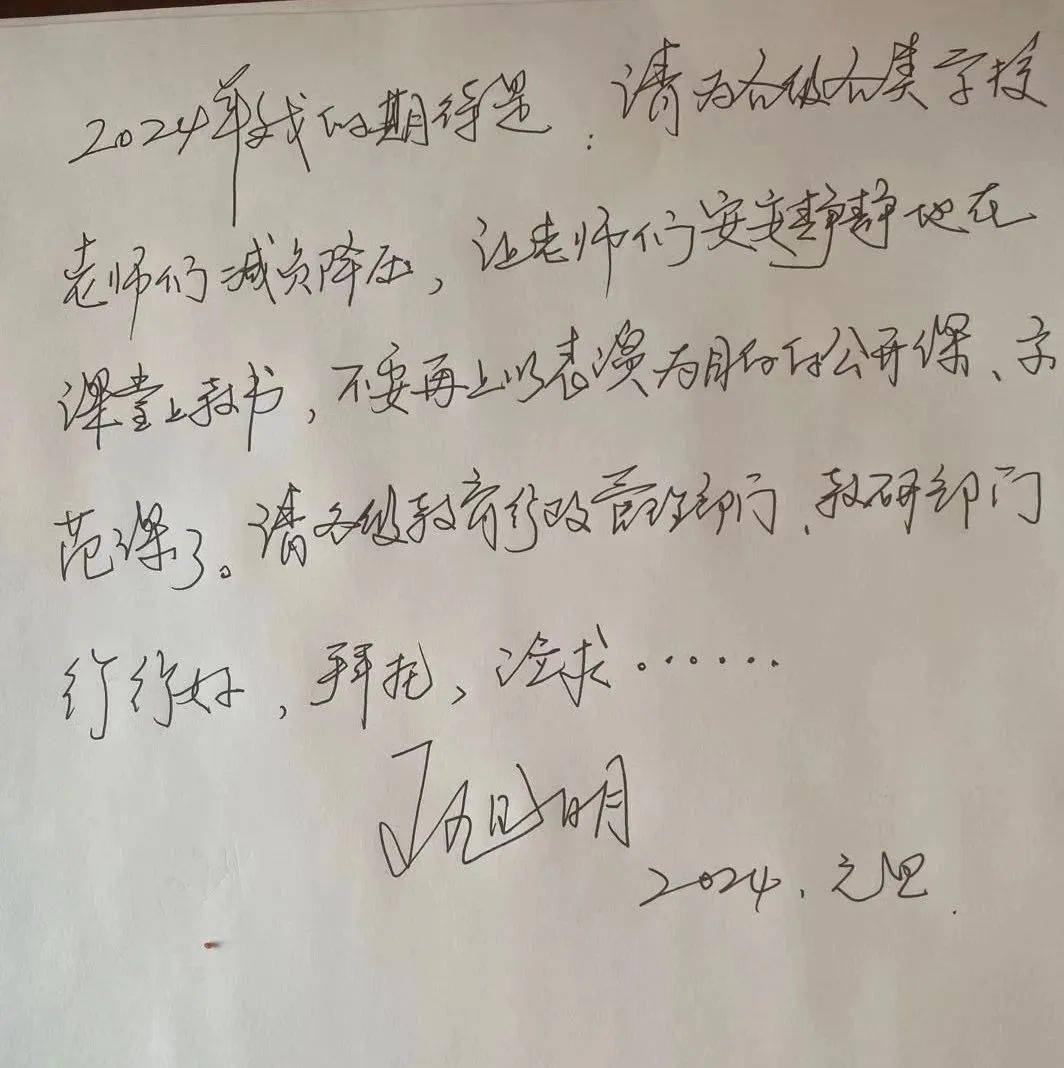 2024年我的期待是：请为各级各类学校
老师们减负降压，让老师们安安静静地在
课堂上教书，不要再上以表演为目的的公开课、示
范课了。请各级教育行政管理部门、教研部门
行行好，拜托，渴求⋯⋯
王旭明
2024.元旦.